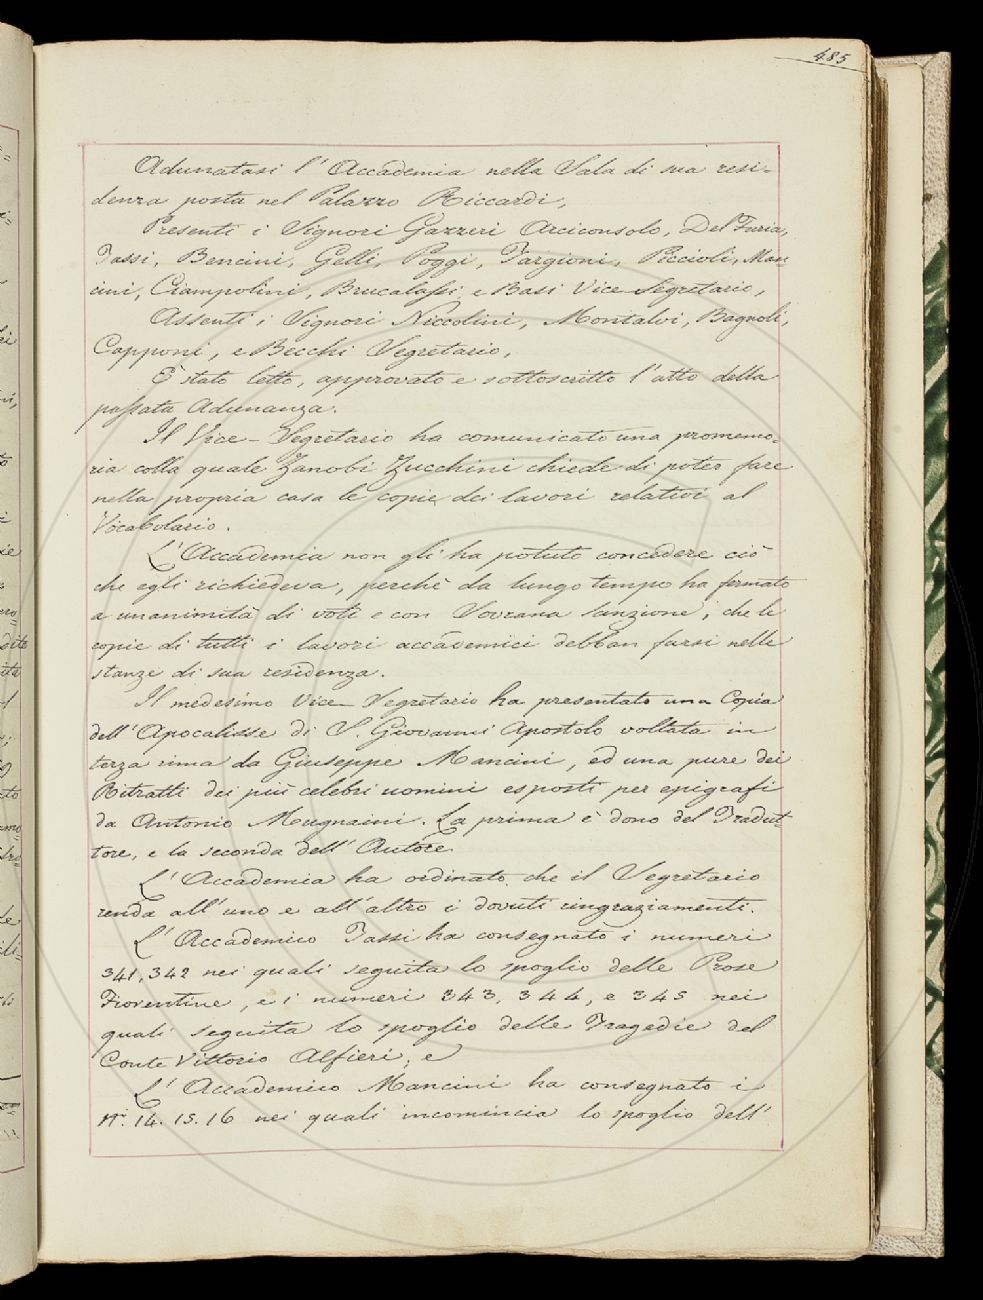 485
Adunatasi l'Accademia nella Sala di sua resi-
denza posta nel Palazzo Riccardi,
Presenti i Signori Gazzeri Arciconsolo, Del Furia,
Tassi, Bencini, Gelli, Poggi, Targioni, Piccioli, Man-
cini, Ciampolini, Brucalassi, e Basi Vice Segretario,
Assenti i Signori Niccolini, Montalvi, Bagnoli,
Capponi, e Becchi Segretario,
È stato letto, approvato e sottoscritto l'atto della
passata Adunanza.
Il Vice-Segretario ha comunicato una promemo-
ria colla quale Zanobi Zucchini chiede di poter fare
nella propria casa le copie dei lavori relativi al
Vocabolario.
L'Accademia non gli ha potuto concedere ciò
che egli richiedeva, perchè da lungo tempo ha fermato
a unanimità di voti e con Sovrana Sanzione, che le
copie di tutti i lavori accademici debban farsi nelle
stanze di sua residenza.
Il medesimo Vice-Segretario ha presentato una Copia
dell'Apocalisse di S. Giovanni Apostolo voltata in
terza rima da Giuseppe Mancini, ed una pure dei
Ritratti dei più celebri uomini esposti per epigrafi
da Antonio Mugnaini. La prima è dono del Tradut-
tore, e la seconda dell'Autore
L'Accademia ha ordinato che il Segretario
renda all'uno e all'altro i dovuti ringraziamenti.
L'Accademico Tassi ha consegnato i numeri
341, 342 nei quali seguita lo spoglio delle Prose
Fiorentine, e i numeri 343, 344, e 345 nei
quali seguita lo spoglio delle Tragedie del
Conte Vittorio Alfieri; e
L'Accademico Mancini ha consegnato i
Nri. 14. 15. 16 nei quali incomincia lo spoglio dell'